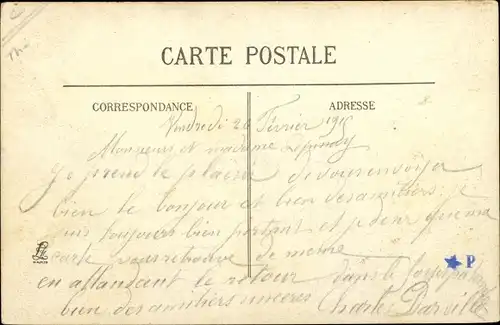 CARTE POSTALE
CORRESPONDANCE
ADRESSE
Vendredi 26 Février 1915
Monsieur et madame
Je prend le plaisir de vous envoyer
bien le bonjour et bien des amitiers je
suis toujours bien portant et je désir que ma
carte vous retrouve de meme
en attandant le retour dans le
bien des amitiers sinceres Charles
P